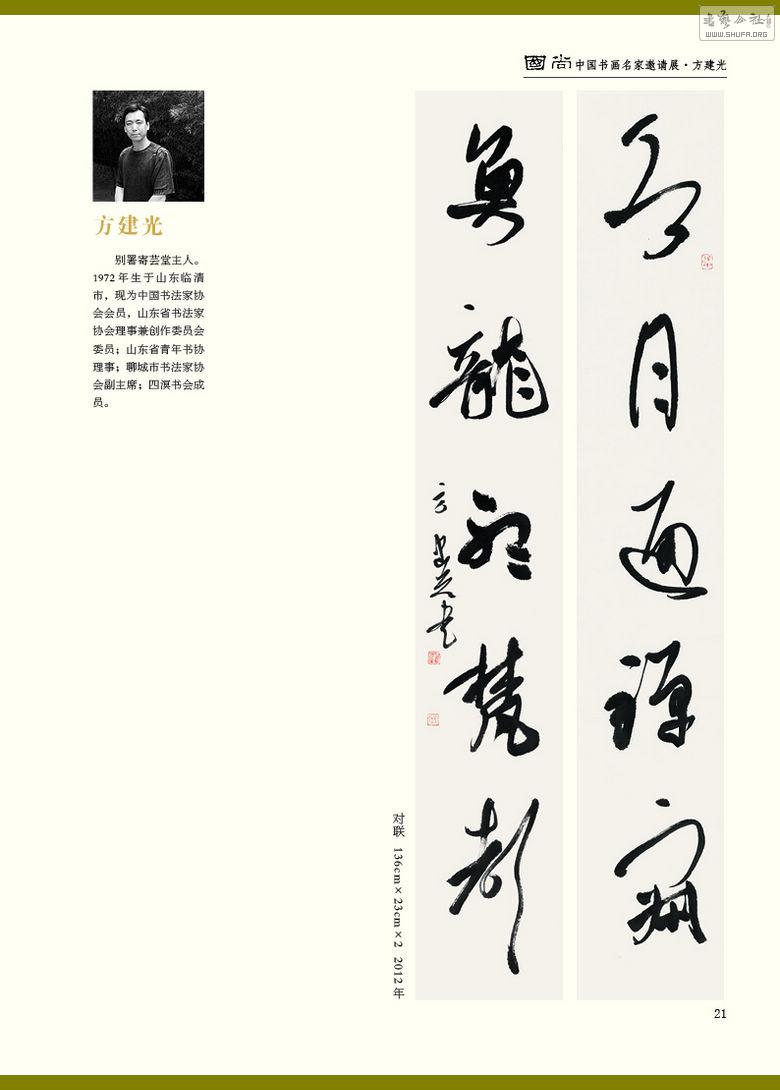 书艺公社
WWW.SHUFA.ORG
國尚中国书画名家邀请展·方建光
方建光
别署寄芸堂主人。
1972年生于山东临清
市，现为中国书法家协
会会员，山东省书法家
协会理事兼创作委员会
委员；山东省青年书协
理事；聊城市书法家协
会副主席；四溟书会成
员。
水月通禪寂
魚龍聽梵聲
方建光书
对联 136cm×23cm×2 2012年
21